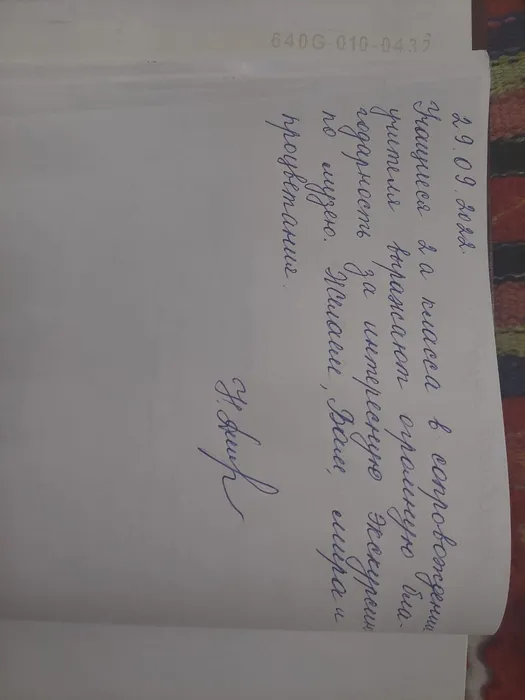 640G-010-043
29.09.2022.
Учащиеся 2а класса в сопровождении
учителя выражают огромную бла-
годарность за интересную экскурсию
по музею. Желаем, Вам, мира и
процветания.